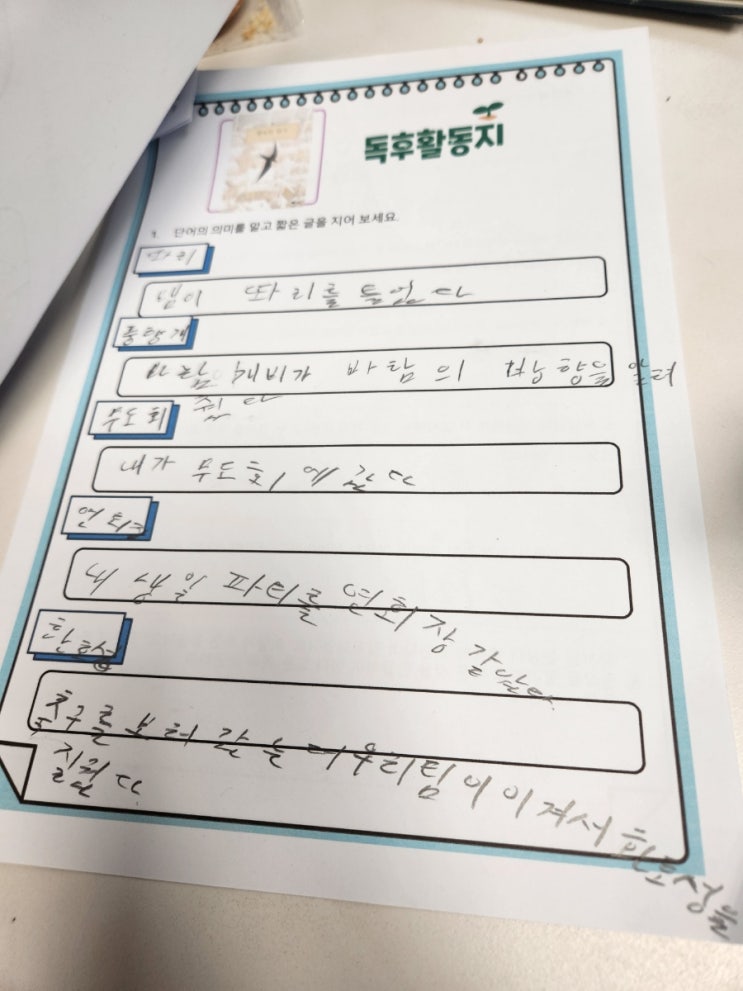 독후활동지
1. 단어의 의미를 알고 짧은 글을 지어 보세요.
따리
뱀이 똬리를 틀었다
풍향계
바람개비가 바람의 방향을 알려
줬다
무도회
내가 무도회에 갔다
연회
내 생일 파티를 연회장 같았다
환호성
축구를 보러 갔는데 우리팀이 이겨서 환호성을
질렀다